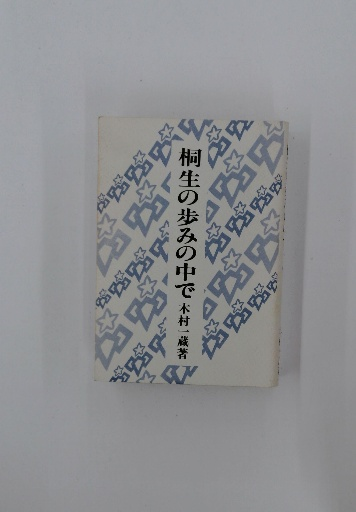 桐生の歩みの中で
木村一蔵著